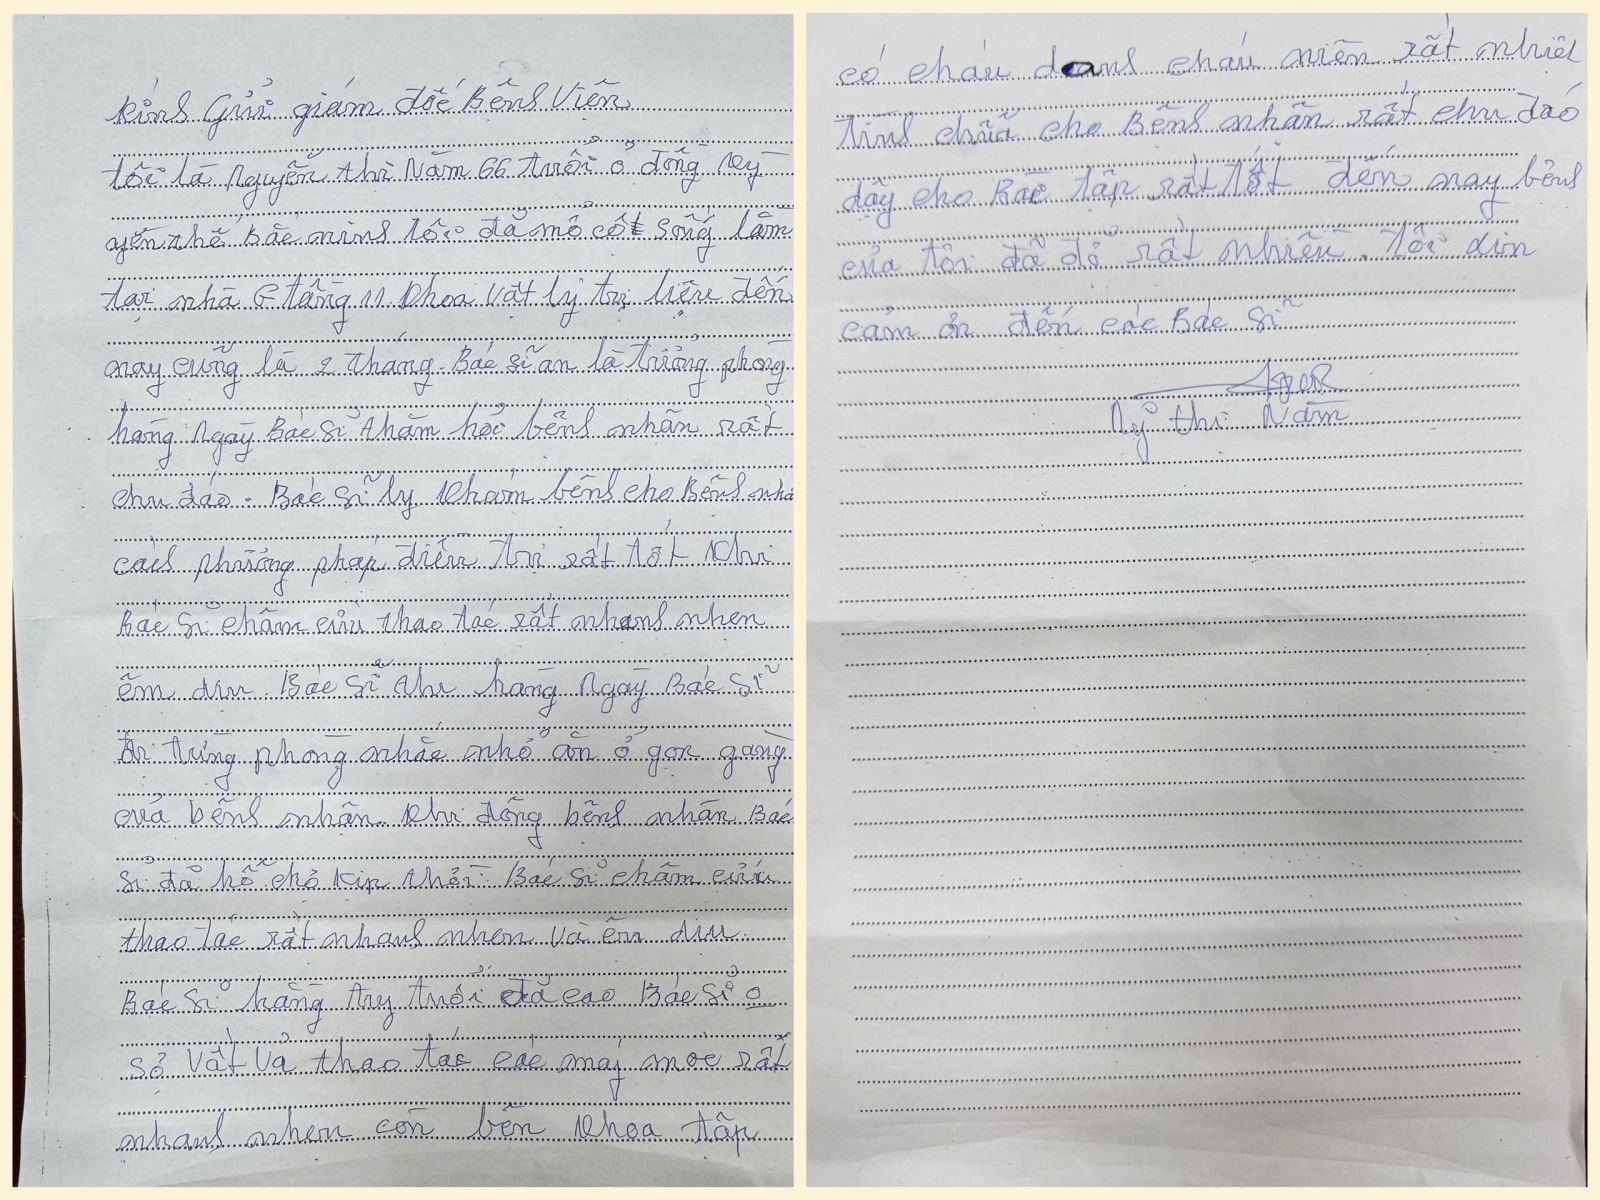 Kính Gửi giám đốc Bệnh Viện
tôi là Nguyễn thị Năm 66 tuổi ở đồng kỳ
yên thế Bắc ninh tôi đã mổ cột sống lằm
tại nhà G tầng 11 khoa Vật lý trị liệu đến
nay cũng là 2 tháng. Bác sĩ an là trưởng phòng
hàng Ngày Bác sĩ thăm hỏi bệnh nhân rất
chu đáo. Bác sĩ ly khám bệnh cho Bệnh nhâ
cách phương pháp điều trị rất tốt khi
Bác sĩ châm cứu thao tác rất nhanh nhẹn
êm dịu. Bác sĩ thu hàng Ngày Bác sĩ
đi từng phòng nhắc nhở ăn ở gọn gàng
của bệnh nhân. khi đông bệnh nhân Bác
sĩ đã hỗ chợ kịp thời. Bác sĩ châm cứu
thao tác rất nhanh nhẹn và êm dịu.
Bác sĩ hằng tuy tuổi đã cao Bác sĩ o
sợ Vất Vả thao tác các máy móc rất
nhanh nhẹn còn bên khoa tập
có cháu doanh cháu niên rất nhiệt
tình chữa cho Bệnh nhân rất chu đáo
dậy cho Bác tập rất tốt đến nay bệnh
của tôi đã đỡ rất nhiều. Tôi xin
cảm ơn đến các Bác sĩ
thị Năm